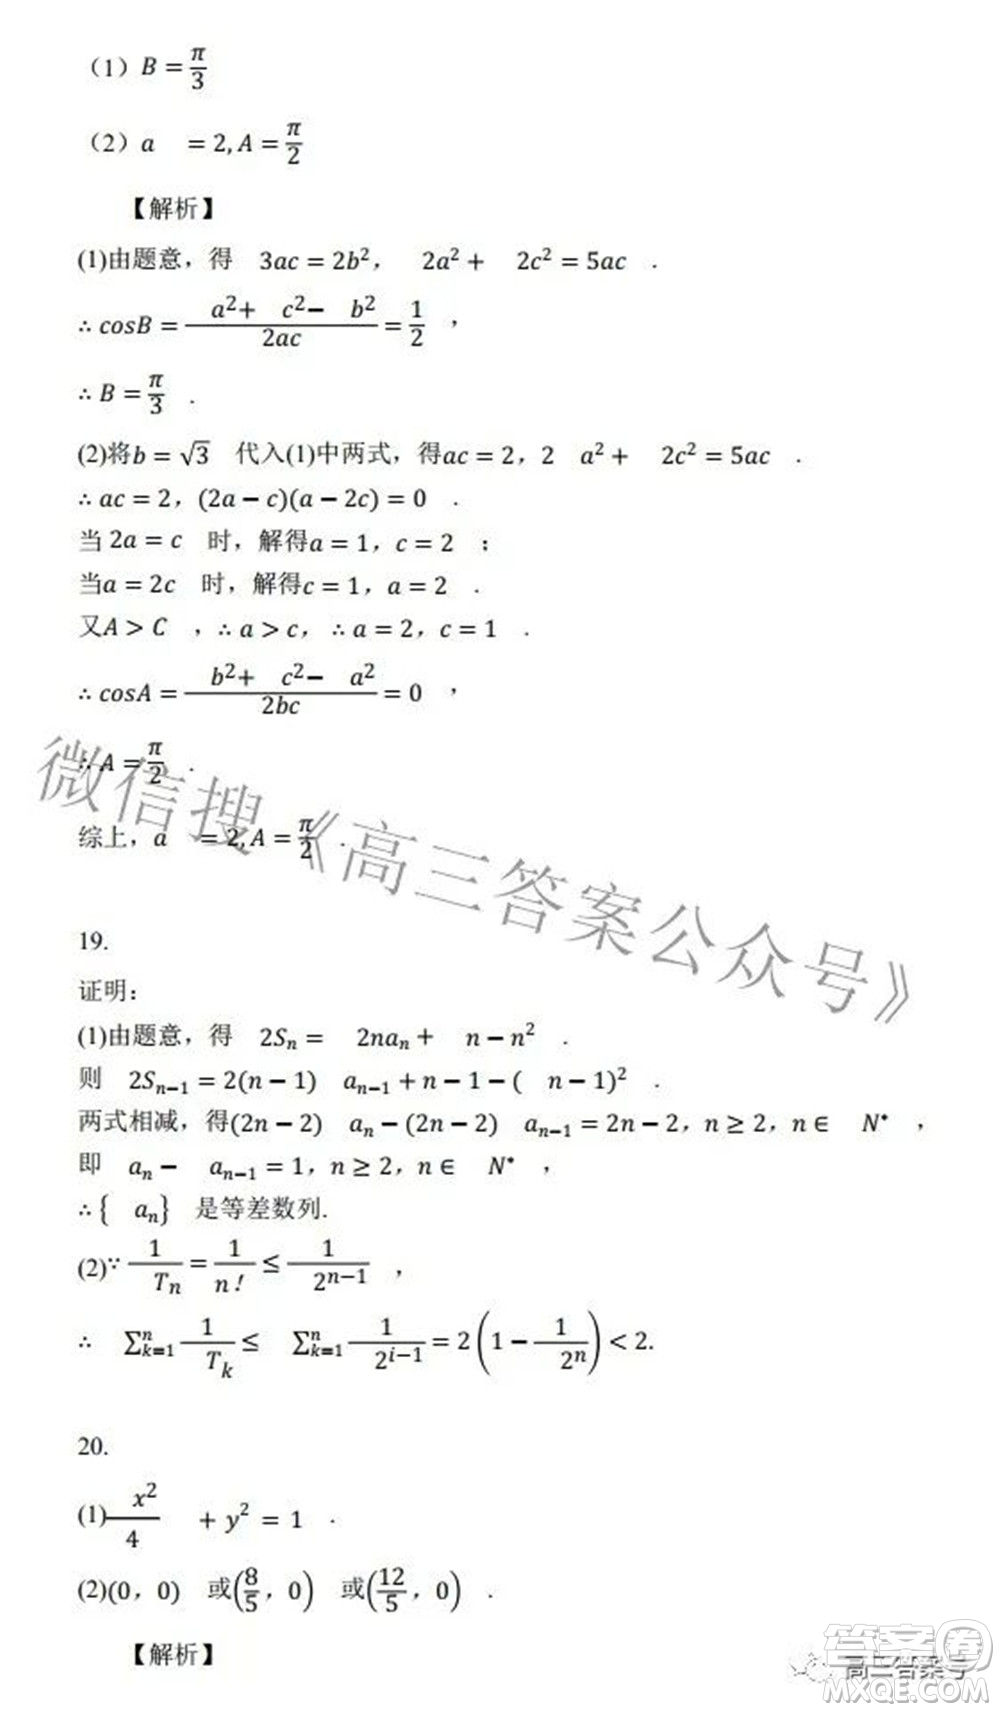 (1) B = π/3
(2) a = 2, A = π/2
【解析】
(1)由题意，得 3ac = 2b²， 2a² + 2c² = 5ac .
∴ cosB = (a² + c² − b²)/2ac = 1/2 ，
∴ B = π/3 .
(2)将b = √3 代入(1)中两式，得ac = 2，2 a² + 2c² = 5ac .
∴ ac = 2，(2a − c)(a − 2c) = 0 .
当 2a = c 时，解得a = 1，c = 2 ；
当a = 2c 时，解得c = 1，a = 2 .
又A > C ，∴ a > c，∴ a = 2，c = 1 .
∴ cosA = (b² + c² − a²)/2bc = 0 ，
∴ A = π/2 .
综上，a = 2, A = π/2 .
微信搜《高三答案公众号》
19.
证明：
(1)由题意，得 2Sₙ = 2naₙ + n − n² .
则 2Sₙ₋₁ = 2(n − 1) aₙ₋₁ + n − 1 − ( n − 1)² .
两式相减，得(2n − 2) aₙ − (2n − 2) aₙ₋₁ = 2n − 2，n ≥ 2，n ∈ N* ，
即 aₙ − aₙ₋₁ = 1，n ≥ 2，n ∈ N* ，
∴ { aₙ} 是等差数列.
(2)∵ 1/Tₙ = 1/n! ≤ 1/2ⁿ⁻¹ ，
∴ ∑ₖ₌₁ⁿ 1/Tₖ ≤ ∑ₖ₌₁ⁿ 1/2ⁱ⁻¹ = 2(1 − 1/2ⁿ) < 2.
20.
(1) x²/4 + y² = 1 .
(2)(0，0) 或(8/5，0) 或(12/5，0) .
【解析】
答案卷
高三答案号
MXQE.COM